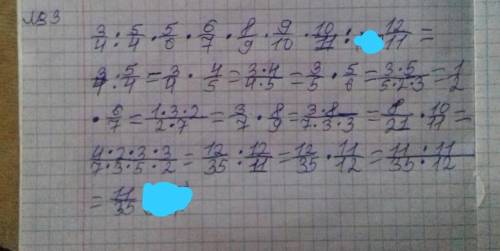 №3
3/4 : 5/4 · 5/6 · 6/7 · 8/9 · 9/10 · 10/11 : 12/11 =
3/4 : 5/4 = 3/4 · 4/5 = 3·4/4·5 = 3/5 · 5/6 = 3·5/5·2·3 = 1/2
· 6/7 = 1·3·2/2·7 = 3/7 · 8/9 = 3·8/7·3·3 = 8/21 · 10/11 =
4·2·3·3/7·3·5·2 = 12/35 · 12/11 = 12/35 · 11/12 = 11/35 · 11/12
= 11/35